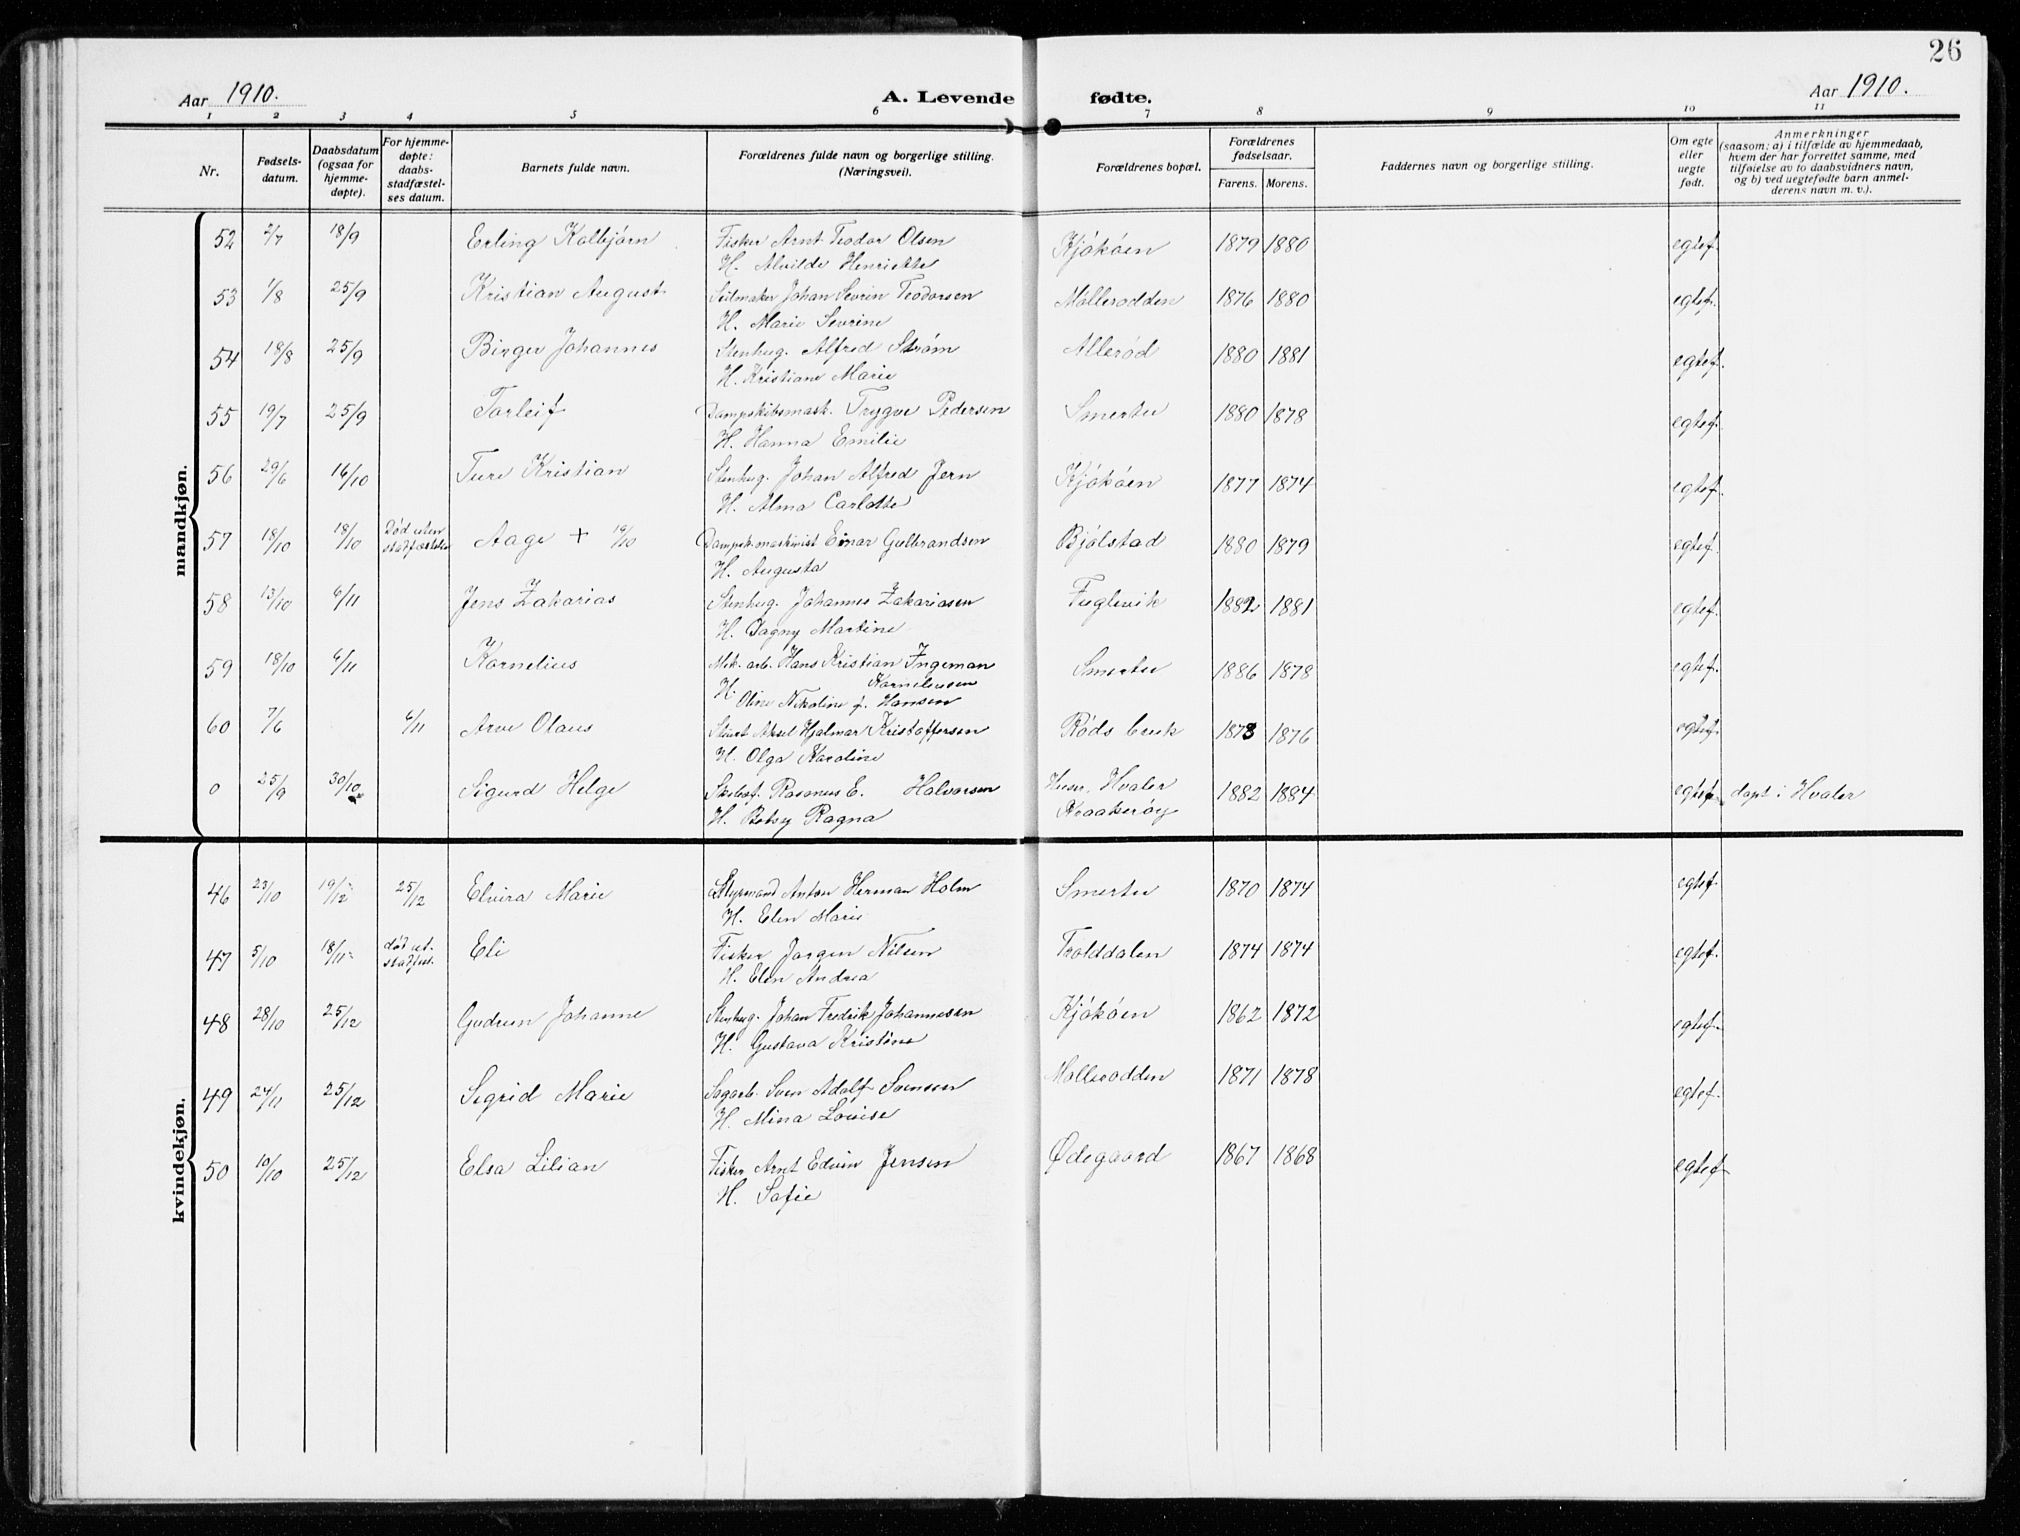 26
Aar 1910.
A. Levende
fødte.
Aar 1910.
1 2 3 4 5 6 7 8 9 10 11
Nr.
Fødsels-
datum.
Daabsdatum
(ogsaa for
hjemme-
døpte).
For hjemme-
døpte:
daabs-
stadfæstel-
ses datum.
Barnets fulde navn.
Forældrenes fulde navn og borgerlige stilling.
(Næringsvei).
Forældrenes bopæl.
Forældrenes
fødselsaar.
Farens. Morens.
Faddernes navn og borgerlige stilling.
Om egte
eller
uegte
født.
Anmerkninger
(saasom: a) i tilfælde av hjemmedaab,
hvem der har forrettet samme, med
tilføielse av to daabsvidners navn,
og b) ved uegtefødte barn anmel-
derens navn m. v.).
mandkjøn.
52 2/7 18/9 Erling Kolbjørn Fisker Arnt Teodor Olsen Kjøkøen 1879 1880 egtef.
H. Alvilde Henriette
53 1/8 25/9 Kristian August Seilmaker Johan Sevrin Teodorsen Møllerodden 1876 1880 egtef.
H. Marie Sevrine
54 18/8 25/9 Birger Johannes Stenhug. Alfred Strøm Allerød 1880 1881 egtef.
H. Kristiane Marie
55 19/7 25/9 Torleif Dampskibsmask. Trygve Pedersen Smertu 1880 1878 egtef.
H. Hanna Emilie
56 29/6 16/10 Ture Kristian Stenhug. Johan Alfred Jern Kjøkøen 1877 1874 egtef.
H. Alma Carlotte
57 18/10 18/10 Død uten Aage + 19/10 Dampsk.maskinist Einar Gulbrandsen Bjølstad 1880 1879 egtef.
stadfæstelse H. Augusta
58 13/10 6/11 Jens Zakarias Stenhug. Johannes Zakariasen Fuglevik 1882 1881 egtef.
H. Dagny Martine
59 18/10 6/11 Kornelius Mek. arb. Hans Kristian Ingeman Smertu 1886 1878 egtef.
Korneliusen
H. Oline Nikoline f. Hansen
60 7/6 6/11 Arve Olaus Aksel Hjalmar Kristoffersen Røds bruk 1873 1876 egtef.
H. Olga Karoline
0 25/9 30/10 Sigurd Helge Rasmus E. Halvorsen Huser, Hvaler 1882 1884 egtef. døpt i Hvaler
H. Betsy Ragna Kraakerøy
kvindekjøn.
46 23/10 19/12 25/12 Elvira Marie Styrmand Anton Herman Holm Smertu 1870 1874 egtef.
H. Elen Marie
47 5/10 18/11 død ut. Eli Fisker Jørgen Nilsen Trolddalen 1874 1874 egtef.
stadfæst. H. Elen Andrea
48 28/10 25/12 Gudrun Johanne Stenhug. Johan Fredrik Johannesen Kjøkøen 1862 1872 egtef.
H. Gustava Kristine
49 24/11 25/12 Sigrid Marie Sagarb. Sven Adolf Svensen Møllerodden 1871 1878 egtef.
H. Mina Lovise
50 10/10 25/12 Elsa Lilian Fisker Arnt Edvin Jensen Ødegaard 1867 1868 egtef
H. Sofie